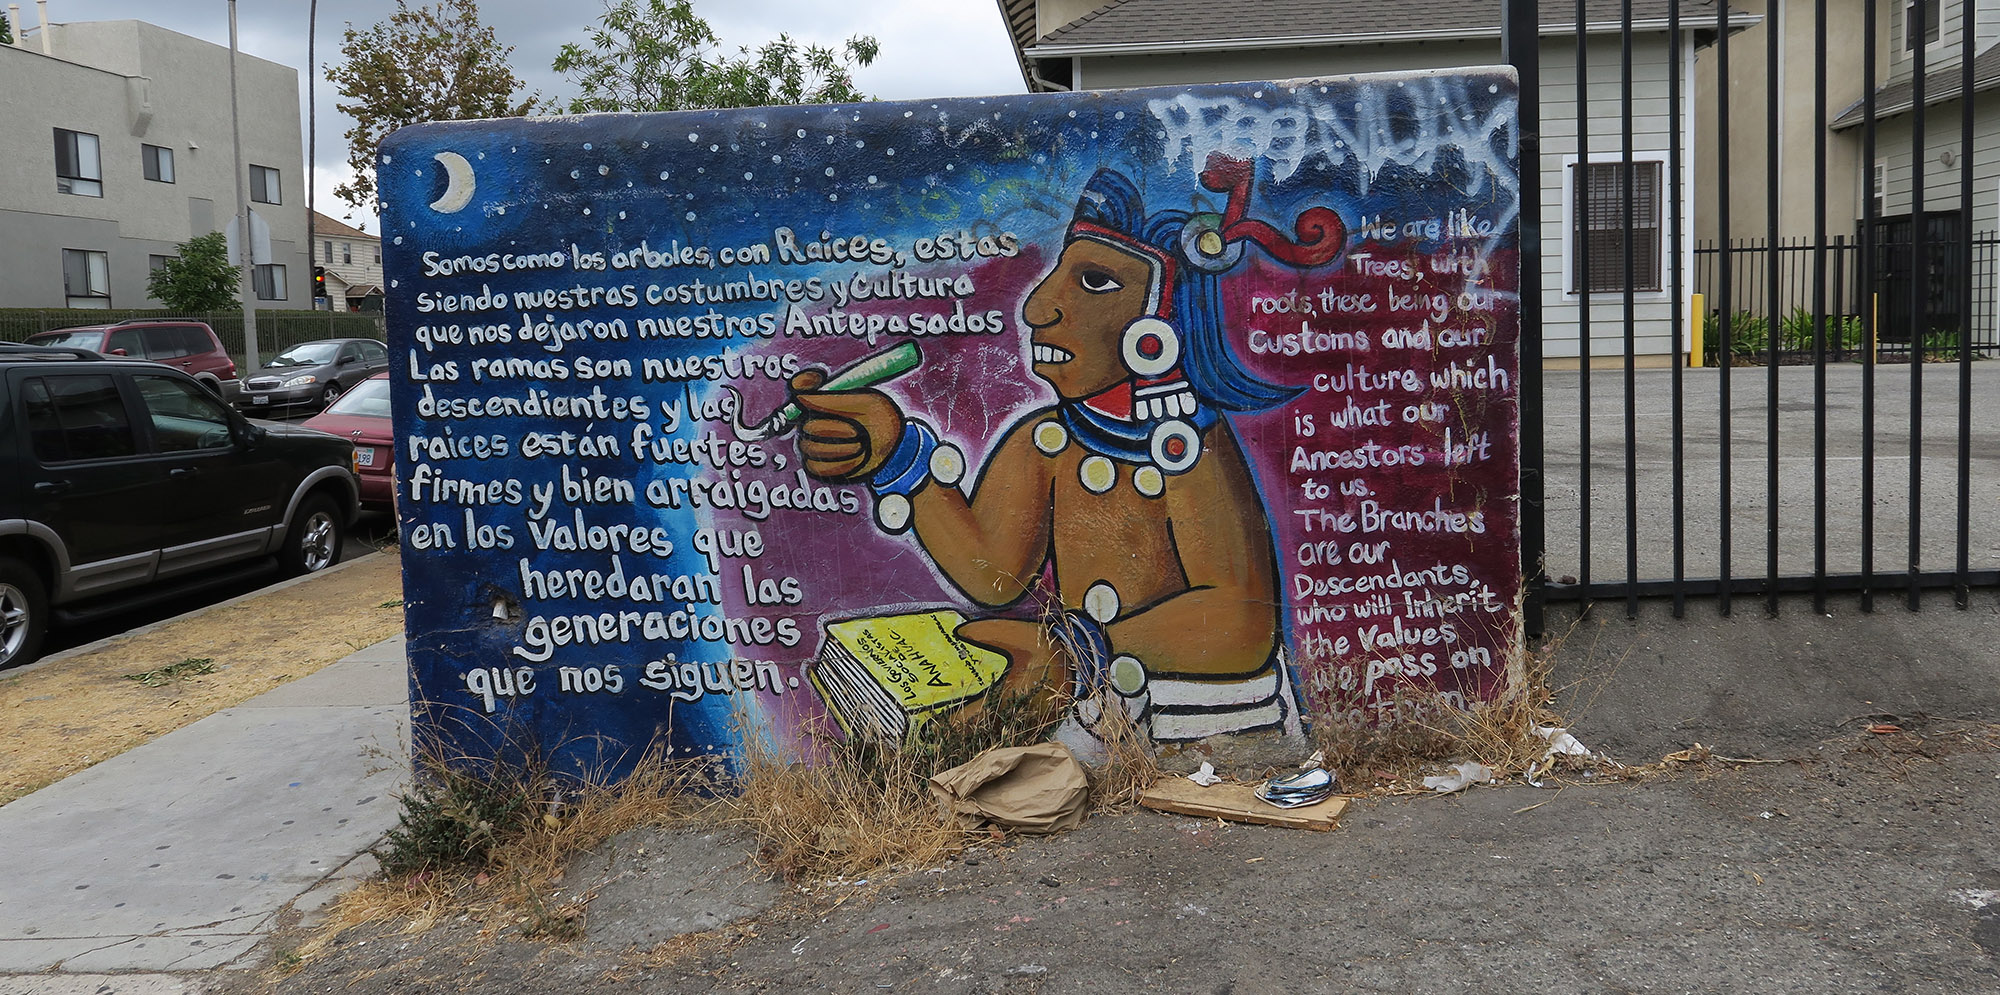 Somos como los arboles, con Raices, estas
siendo nuestras costumbres y Cultura
que nos dejaron nuestros Antepasados
Las ramas son nuestros
descendiantes y las
raices están fuertes,
firmes y bien arraigadas
en los Valores que
heredaran las
generaciones
que nos siguen.
LOS GOVIERNOS
SOCIALISTAS
DE
ANAHUAC
We are like
Trees, with
roots, these being our
Customs and our
culture which
is what our
Ancestors left
to us.
The Branches
are our
Descendants,
who will Inherit
the Values
we pass on
to them